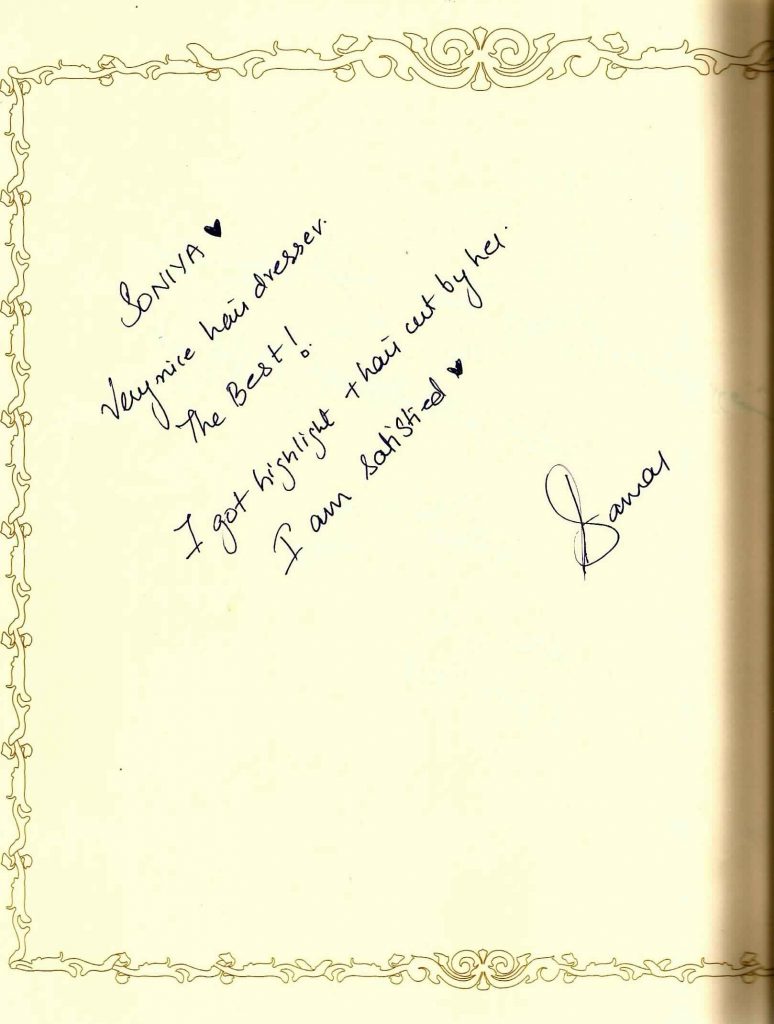 SONIYA ♥
Very nice hair dresser.
The Best!
I got highlight + hair cut by her.
I am satisfied ♥